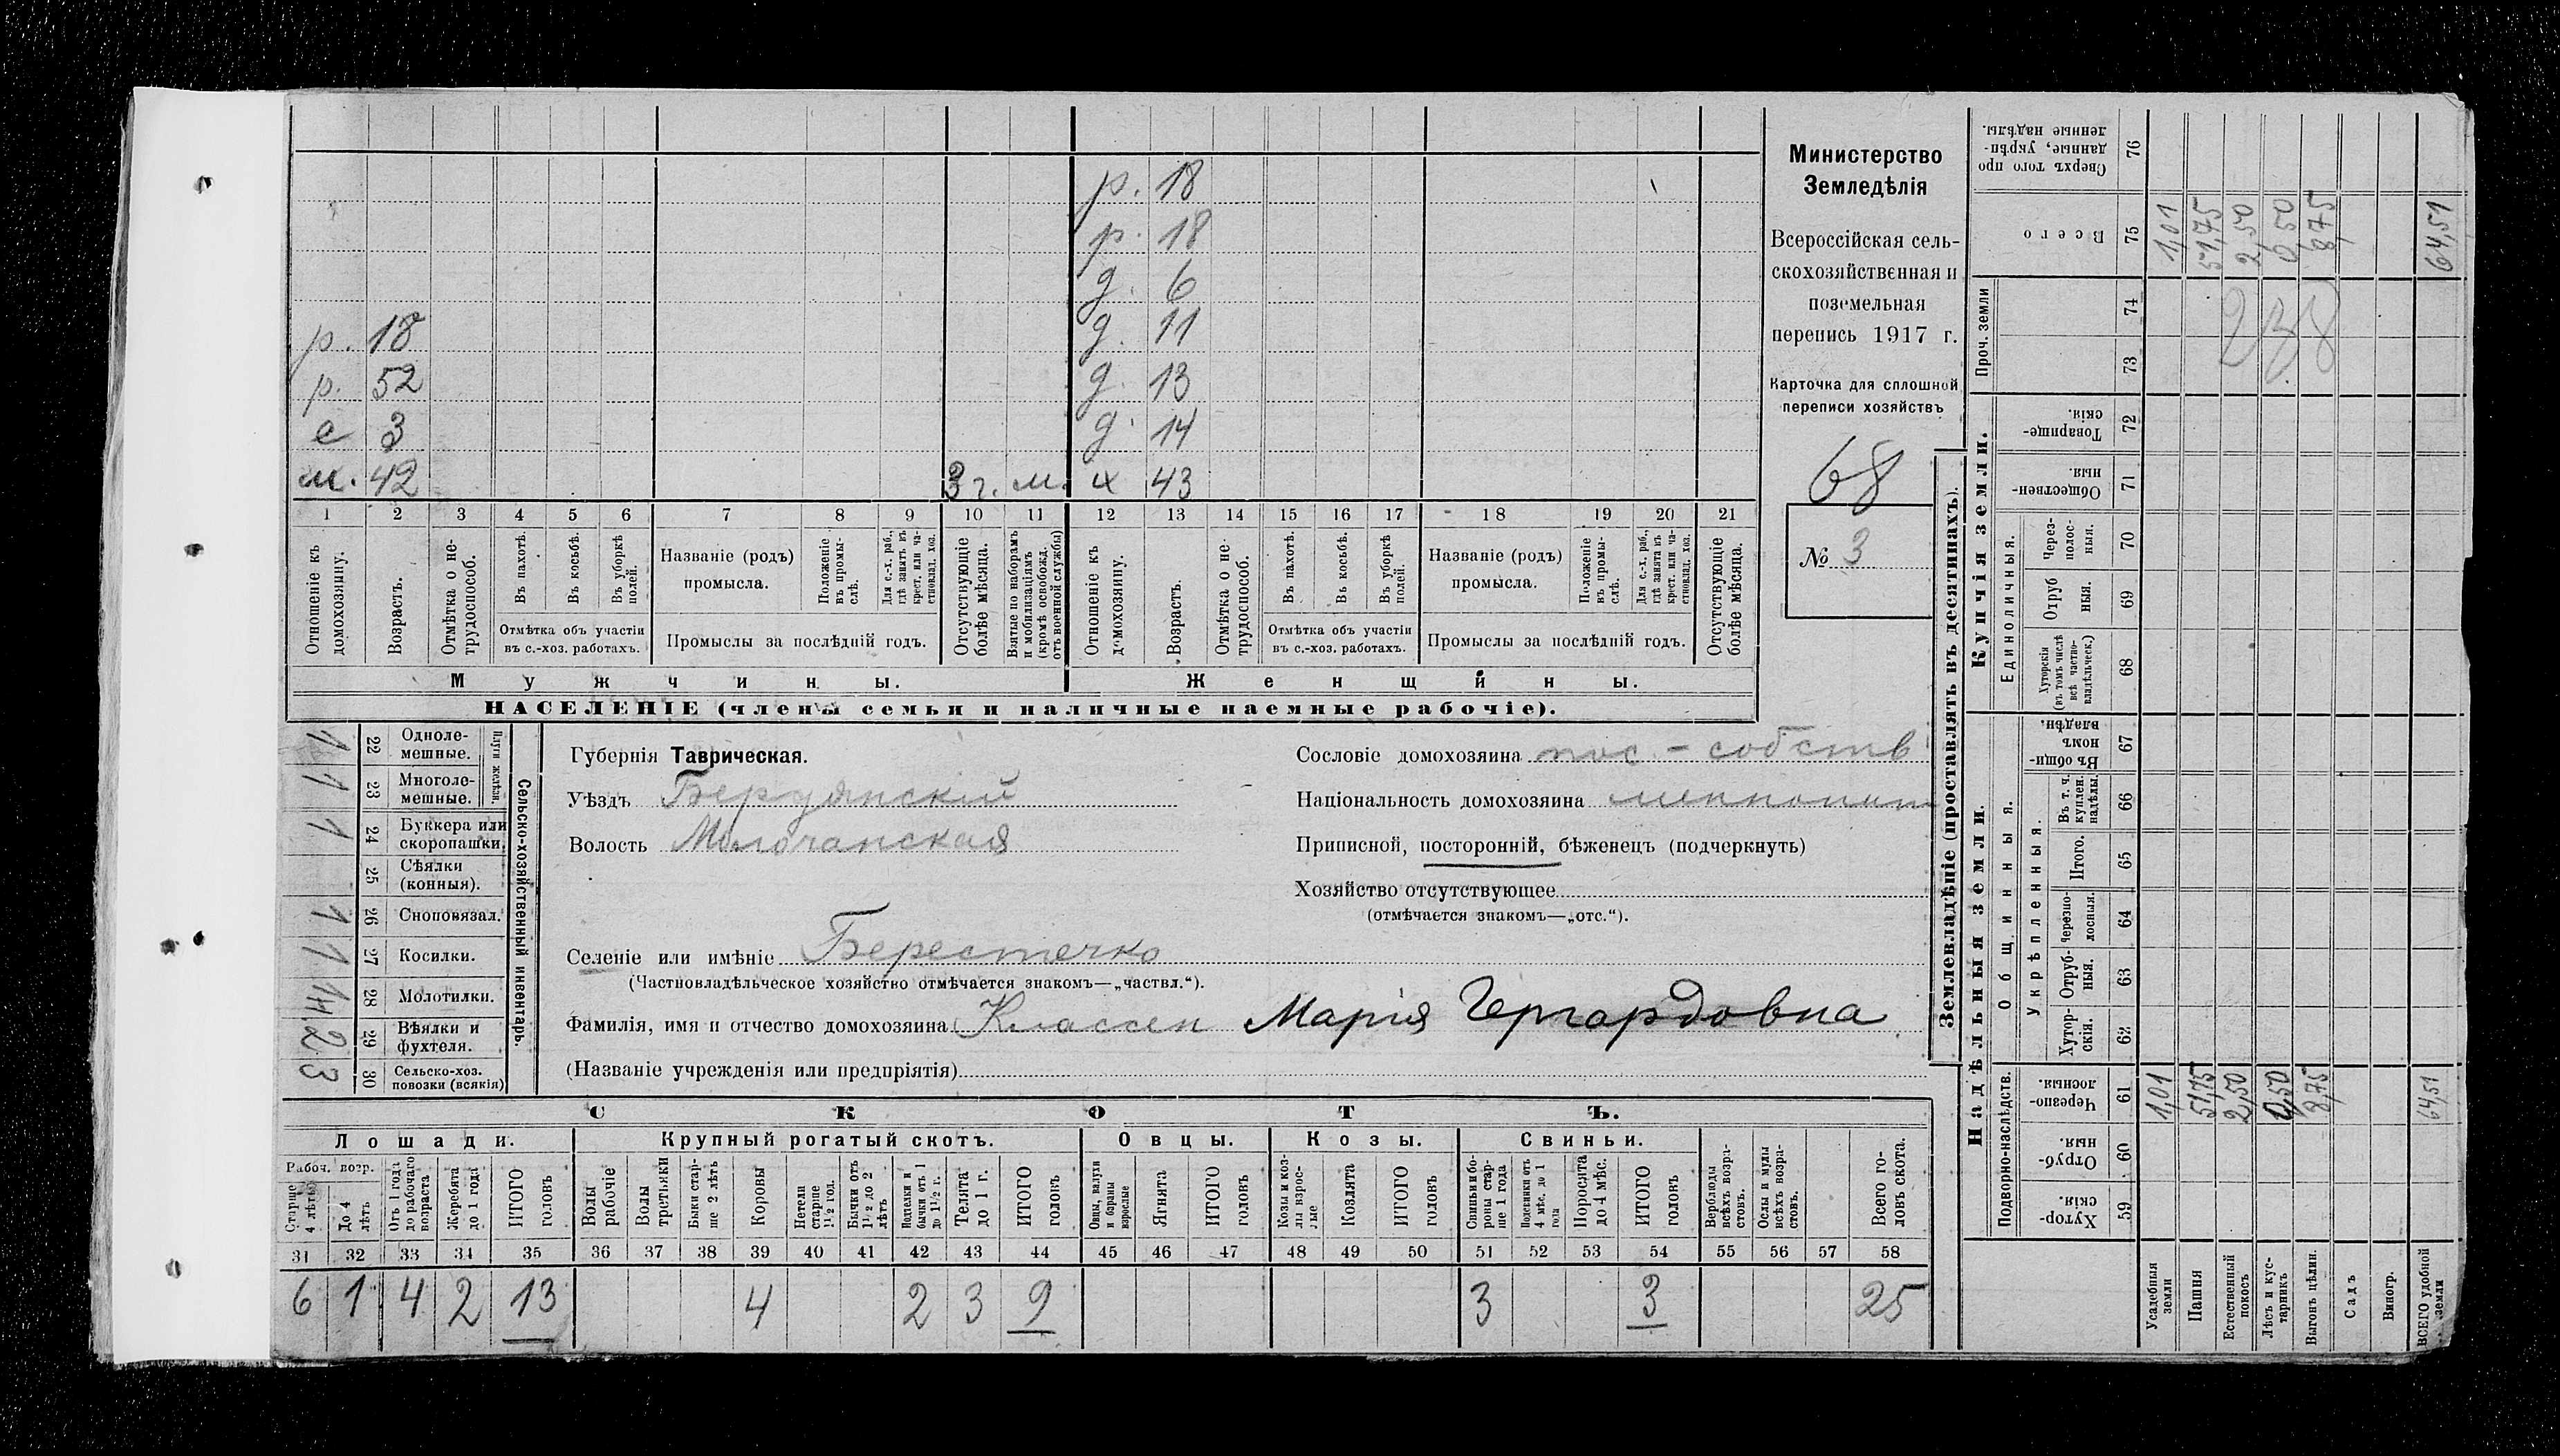 р. 18
р. 18
д. 6
р. 18 д. 11
р. 52 д. 13
с 3 д. 14
м. 42 3 г. м. х 43
1 2 3 4 5 6 7 8 9 10 11 12 13 14 15 16 17 18 19 20 21
Отношеніе къ домохозяину.
Возрастъ.
Отмѣтка о нетрудоспособ.
Въ пахотѣ.
Въ косьбѣ.
Въ уборкѣ полей.
Отмѣтка объ участіи въ с.-хоз. работахъ.
Названіе (родъ) промысла.
Положеніе въ промыслѣ.
Для с.-х. раб., гдѣ занятъ въ крест. или частновлад. хоз.
Промыслы за послѣдній годъ.
Отсутствующіе болѣе мѣсяца.
Взятые по наборамъ и мобилизаціямъ (кромѣ освобожд. отъ военной службы)
Отношеніе къ домохозяину.
Возрастъ.
Отмѣтка о нетрудоспособ.
Въ пахотѣ.
Въ косьбѣ.
Въ уборкѣ полей.
Отмѣтка объ участіи въ с.-хоз. работахъ.
Названіе (родъ) промысла.
Положеніе въ промыслѣ.
Для с.-х. раб., гдѣ занята въ крест. или частновлад. хоз.
Промыслы за послѣдній годъ.
Отсутствующіе болѣе мѣсяца.
Мужчины. Женщины.
НАСЕЛЕНІЕ (члены семьи и наличные наемные рабочіе).
Министерство
Земледѣлія
Всероссійская сель-
скохозяйственная и
поземельная
перепись 1917 г.
Карточка для сплошной
переписи хозяйствъ
68
№ 3
Сельско-хозяйственный инвентарь.
Плуги желѣзн.
1 22 Однолемешные.
1 23 Многолемешные.
1 24 Буккера или скоропашки.
25 Сѣялки (конныя).
1 26 Сноповязал.
1 27 Косилки.
28 Молотилки.
2 29 Вѣялки и фухтеля.
3 30 Сельско-хоз. повозки (всякія)
Губернія Таврическая.
Уѣздъ Бердянскій
Волость Молочанская
Сословіе домохозяина пос.-собств
Національность домохозяина меннонит
Приписной, посторонній, бѣженецъ (подчеркнуть)
Хозяйство отсутствующее
(отмѣчается знакомъ—„отс.“).
Селеніе или имѣніе Берестечко
(Частновладѣльческое хозяйство отмѣчается знакомъ—„частвл.“).
Фамилія, имя и отчество домохозяина Классен Марія Гергардовна
(Названіе учрежденія или предпріятія)
СКОТЪ.
Лошади. Крупный рогатый скотъ. Овцы. Козы. Свиньи.
Рабоч. возр.
Старше 4 лѣтъ
До 4 лѣтъ
Отъ 1 года до рабочаго возраста
Жеребята до 1 года
ИТОГО головъ
Волы рабочіе
Волы третьяки
Быки старше 2 лѣтъ
Коровы
Нетели старше 1½ год.
Бычки отъ 1½ до 2 лѣтъ
Подтелки и бычки отъ 1 до 1½ г.
Телята до 1 г.
ИТОГО головъ
Овцы, валухи и бараны взрослые
Ягнята
ИТОГО головъ
Козы и козлы взрослые
Козлята
ИТОГО головъ
Свиньи и боровы старше 1 года
Подсвинки отъ 4 мѣс. до 1 года
Поросята до 4 мѣс.
ИТОГО головъ
Верблюды всѣхъ возрастовъ.
Ослы и мулы всѣхъ возрастовъ.
Всего головъ скота.
31 32 33 34 35 36 37 38 39 40 41 42 43 44 45 46 47 48 49 50 51 52 53 54 55 56 57 58
6 1 4 2 13 4 2 3 9 3 3 25
Землевладѣніе (проставлять въ десятинахъ).
Надѣльныя земли. Купчія земли.
Подворно-наслѣдств.
Общинныя.
Укрѣпленныя.
Единоличныя.
Проч. земли
Хуторскія. 59
Отрубныя. 60
Черезполосныя. 61
Хуторскія. 62
Отрубныя. 63
Черезполосныя. 64
Итого. 65
Въ т. ч. куплен. надѣлы. 66
Въ общинномъ владѣн. 67
Хуторскія (въ томъ числѣ всѣ частновладѣльческ.) 68
Отрубныя. 69
Черезполосныя. 70
Общественныя. 71
Товарищескія. 72
73
74
Всего 75
Сверхъ того проданные, укрѣпленные надѣлы. 76
238
Усадебныя земли 1,01 1,01
Пашня 51,75 51,75
Естественный покосъ 2,50 2,50
Лѣсъ и кустарникъ 0,50 0,50
Выгонъ цѣлин. 8,75 8,75
Садъ
Виногр.
ВСЕГО удобной земли 64,51 64,51